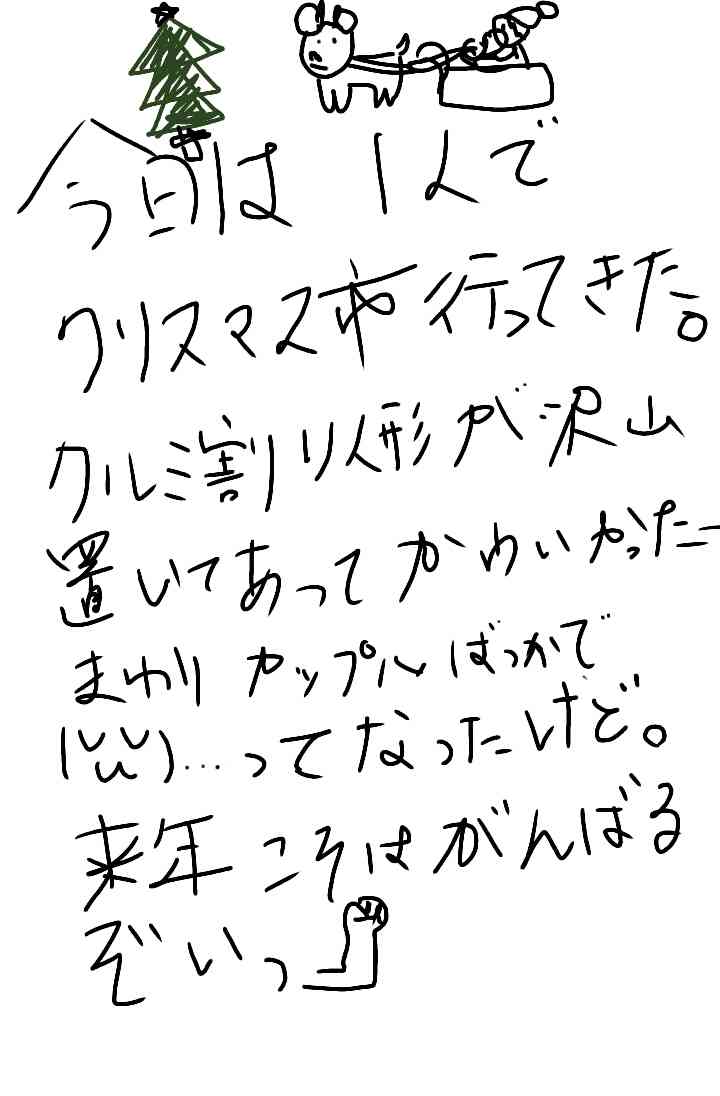 今日は 1人で
クリスマス市行ってきた。
クルミ割り人形が沢山
置いてあってかわいかったー
まわりカップルばっかで
( ︶ω︶)…ってなったけど。
来年こそはがんばる
ぞいっ